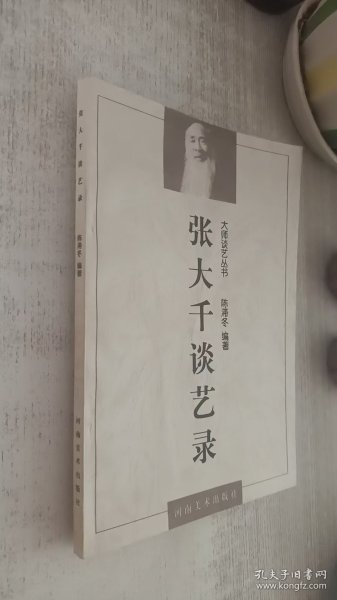 张大千谈艺录
陈滞冬 编著
河南美术出版社
大师谈艺丛书
陈滞冬 编著
张大千谈艺录
河南美术出版社
孔夫子旧书网